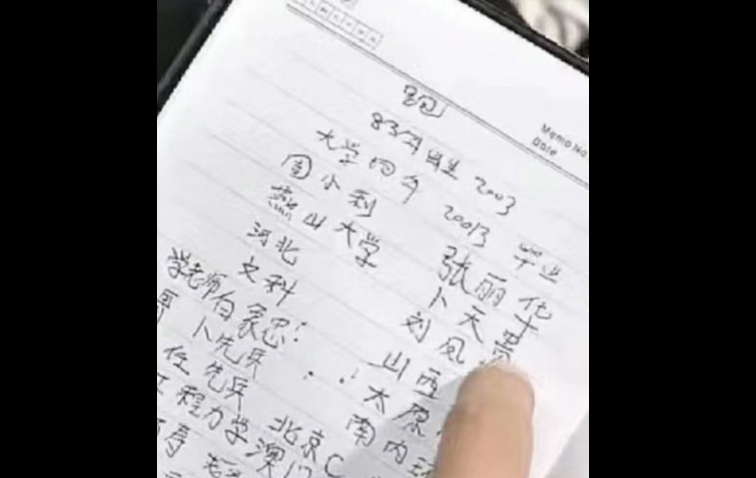 Memo No
Date
83年出生 2003
大学四年 20013 毕业
周小利 张丽华
燕山大学 卜天
河北 刘凤
文科 山西
学老师白家忠! 太原
卜先兵 . ! 南内环
任先兵 北京C
工程力学澳门